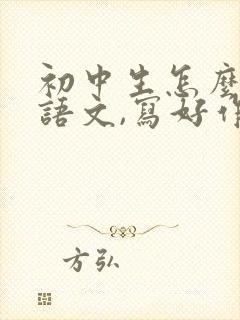 初中生怎麼
語文,寫好作
方弘